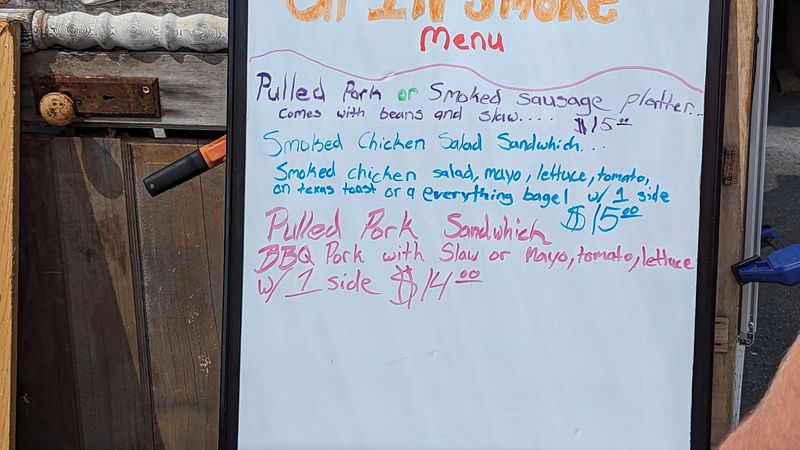 UP IN SMOKE
Menu
Pulled Pork or Smoked sausage platter..
comes with beans and slaw.... $15.00
Smoked Chicken Salad Sandwhich...
Smoked chicken salad, mayo, lettuce, tomato,
on texas toast or a everything bagel w/ 1 side
$15.00
Pulled Pork Sandwhich
BBQ Pork with Slaw or Mayo, tomato, lettuce
w/ 1 side $14.00